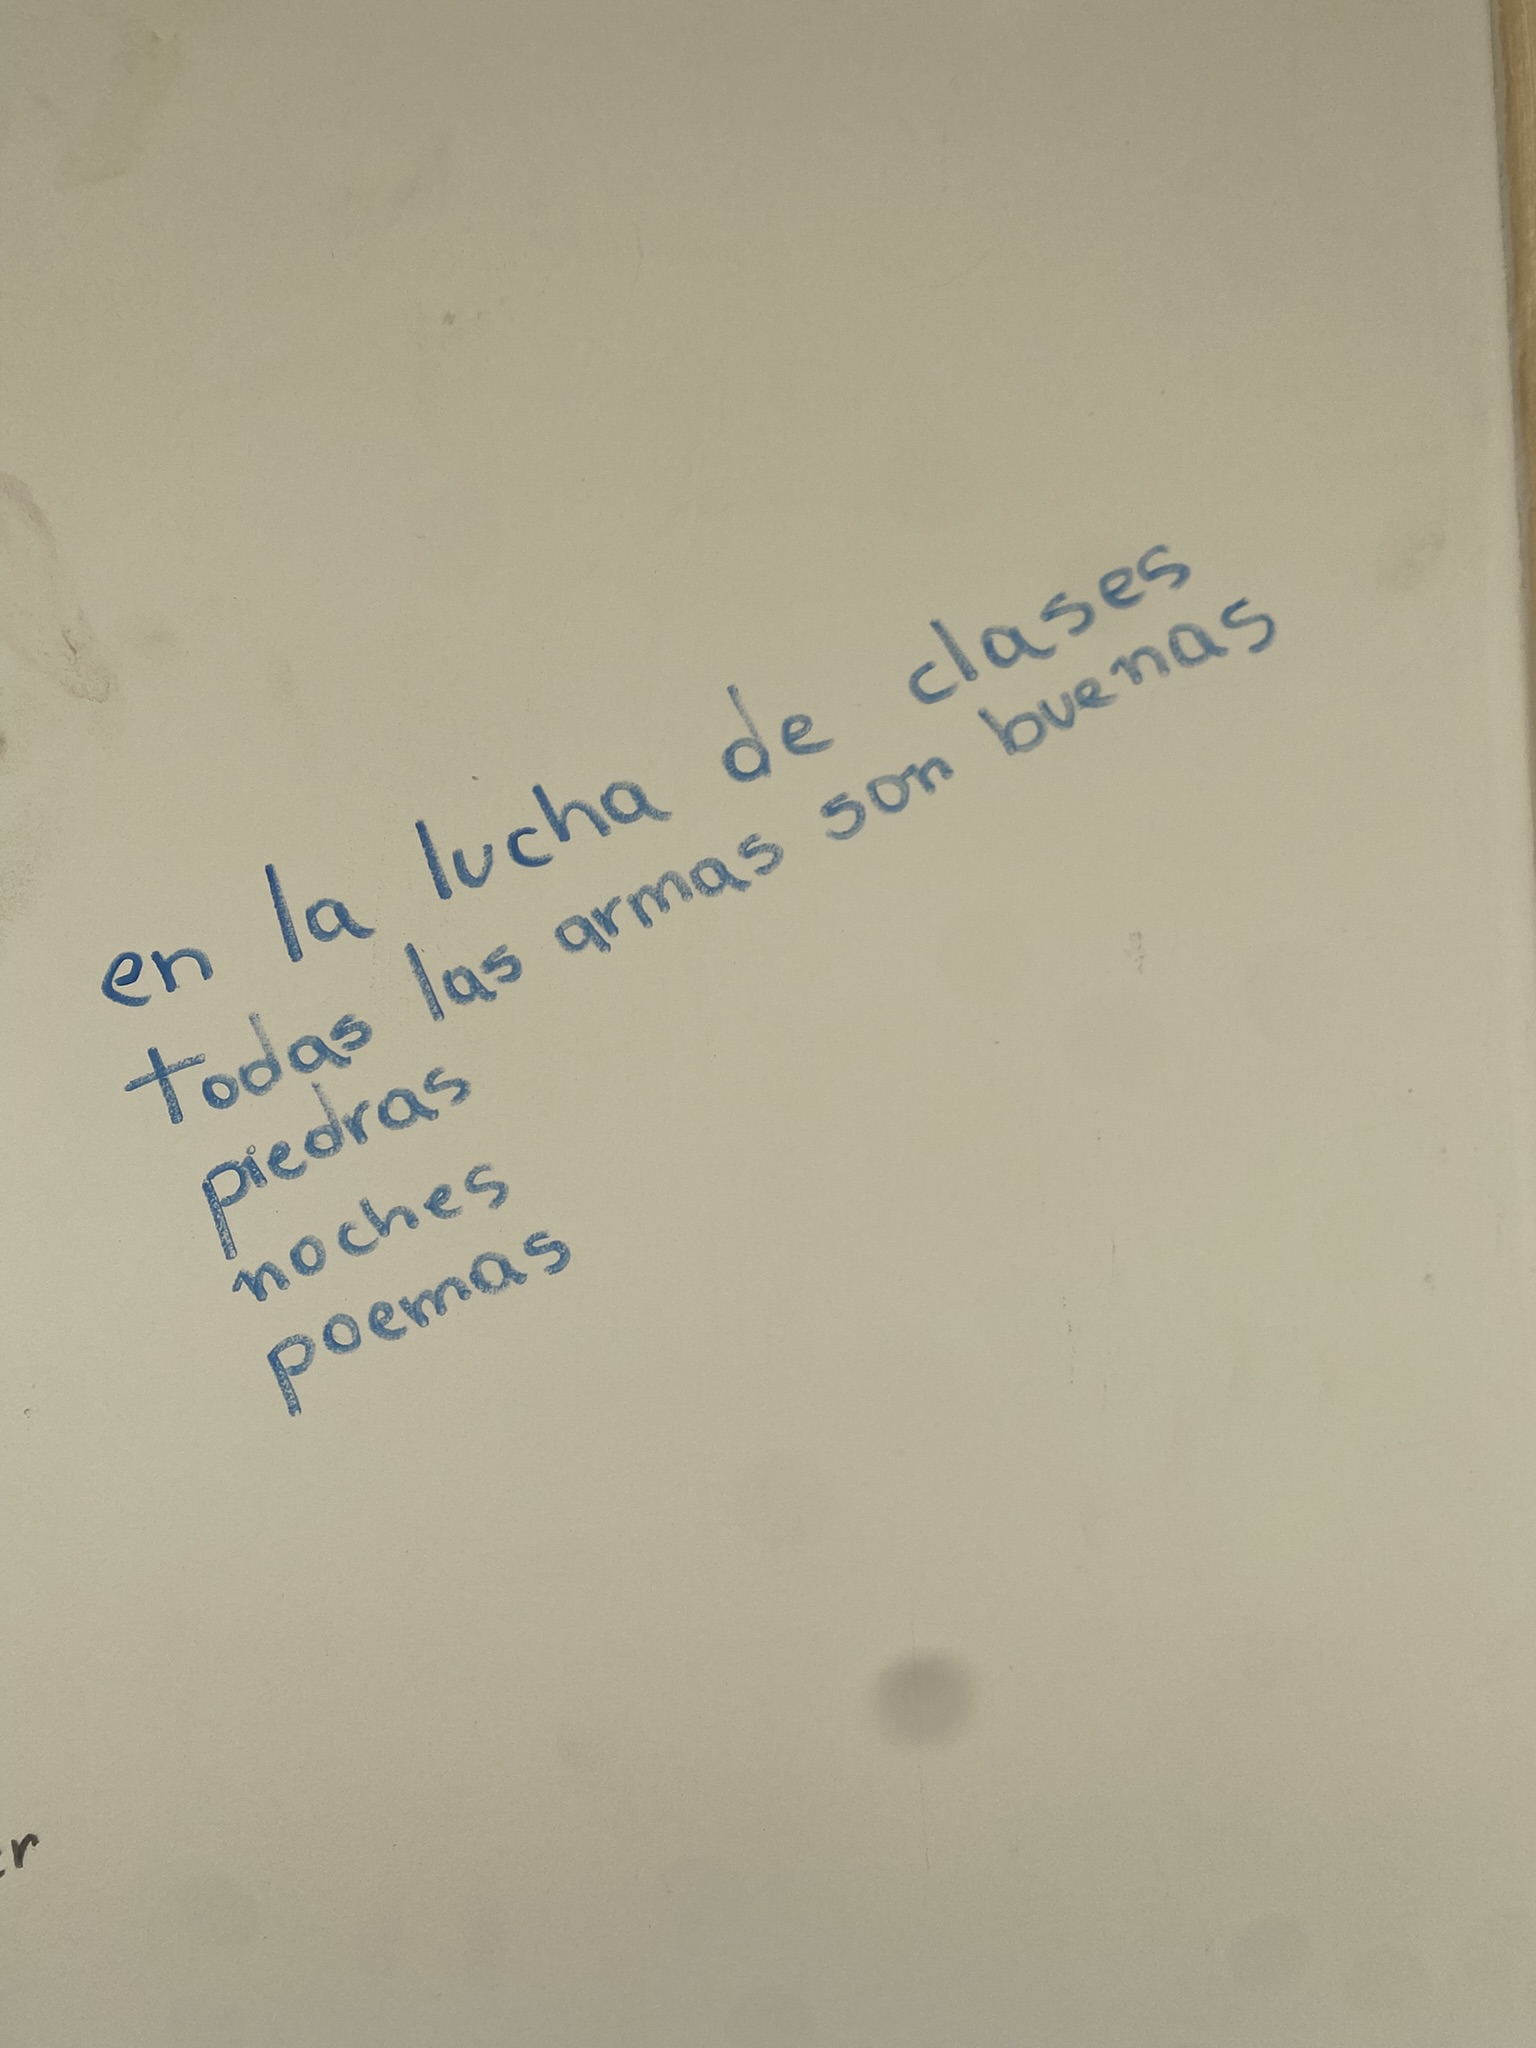 en la lucha de clases
todas las armas son buenas
piedras
noches
poemas